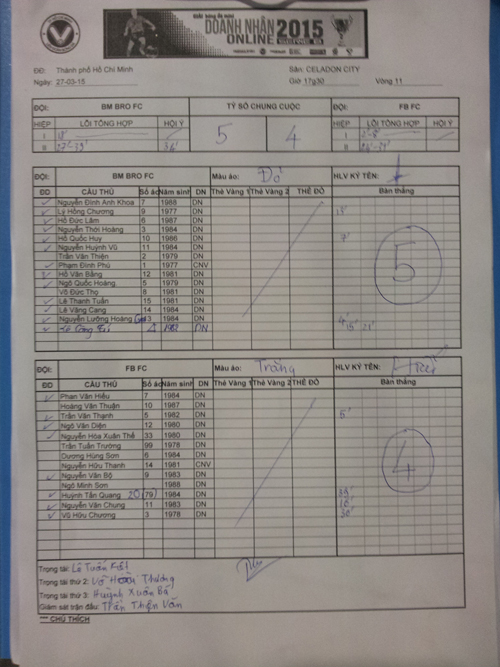 DOANH NHÂN 2015
ONLINE
ĐĐ: Thành phố Hồ Chí Minh Sân: CELADON CITY
Ngày: 27-03-15 Giờ 17g30 Vòng 11
ĐỘI: BM BRO FC TỶ SỐ CHUNG CUỘC ĐỘI: FB FC
HIỆP LỖI TỔNG HỢP HỘI Ý 5 4 HIỆP LỖI TỔNG HỢP HỘI Ý
I I
II II
ĐỘI: BM BRO FC Màu áo: Đỏ HLV KÝ TÊN:
ĐD CẦU THỦ Số áo Năm sinh DN Thẻ Vàng 1 Thẻ Vàng 2 THẺ ĐỎ Bàn thắng
Nguyễn Đình Anh Khoa 7 1988 DN
Lý Hồng Chương 9 1977 DN 15'
Hồ Đức Lâm 6 1987 DN
Nguyễn Thời Hoàng 3 1984 DN
Hồ Quốc Huy 10 1986 DN 7'
Nguyễn Huỳnh Vũ 11 1984 DN
Trần Văn Thiện 2 1979 DN
Phạm Đình Phú 1 1977 CNV 5
Hồ Văn Bằng 12 1981 DN
Ngô Quốc Hoàng 5 1979 DN
Võ Đức Thọ 8 1981 DN
Lê Thanh Tuấn 15 1981 DN
Lê Văng Cang 14 1984 DN
Nguyễn Lưỡng Hoàng 13 1984 DN
DN 15' 21'
ĐỘI: FB FC Màu áo: Trắng HLV KÝ TÊN:
ĐD CẦU THỦ Số áo Năm sinh DN Thẻ Vàng 1 Thẻ Vàng 2 THẺ ĐỎ Bàn thắng
Phan Văn Hiếu 7 1984 DN
Hoàng Văn Thuận 10 1987 DN
Trần Văn Thạnh 5 1982 DN 5'
Ngô Văn Diện 12 1980 DN
Nguyễn Hòa Xuân Thế 33 1980 DN
Trần Tuấn Trường 99 1978 DN
Dương Hùng Sơn 6 1984 DN
Nguyễn Hữu Thanh 14 1981 CNV 4
Nguyễn Văn Bộ 9 1983 DN
Ngô Minh Sơn 1988 DN
Huỳnh Tấn Quang 20 (79) 1984 DN
Nguyễn Văn Chung 11 1983 DN
Vũ Hữu Chương 3 1978 DN
Trọng tài: Lê Tuấn Kiệt
Trọng tài thứ 2: Võ Hoài Thương
Trọng tài thứ 3: Huỳnh Xuân Bá
Giám sát trận đấu: Trần Thiện Văn
*** CHÚ THÍCH